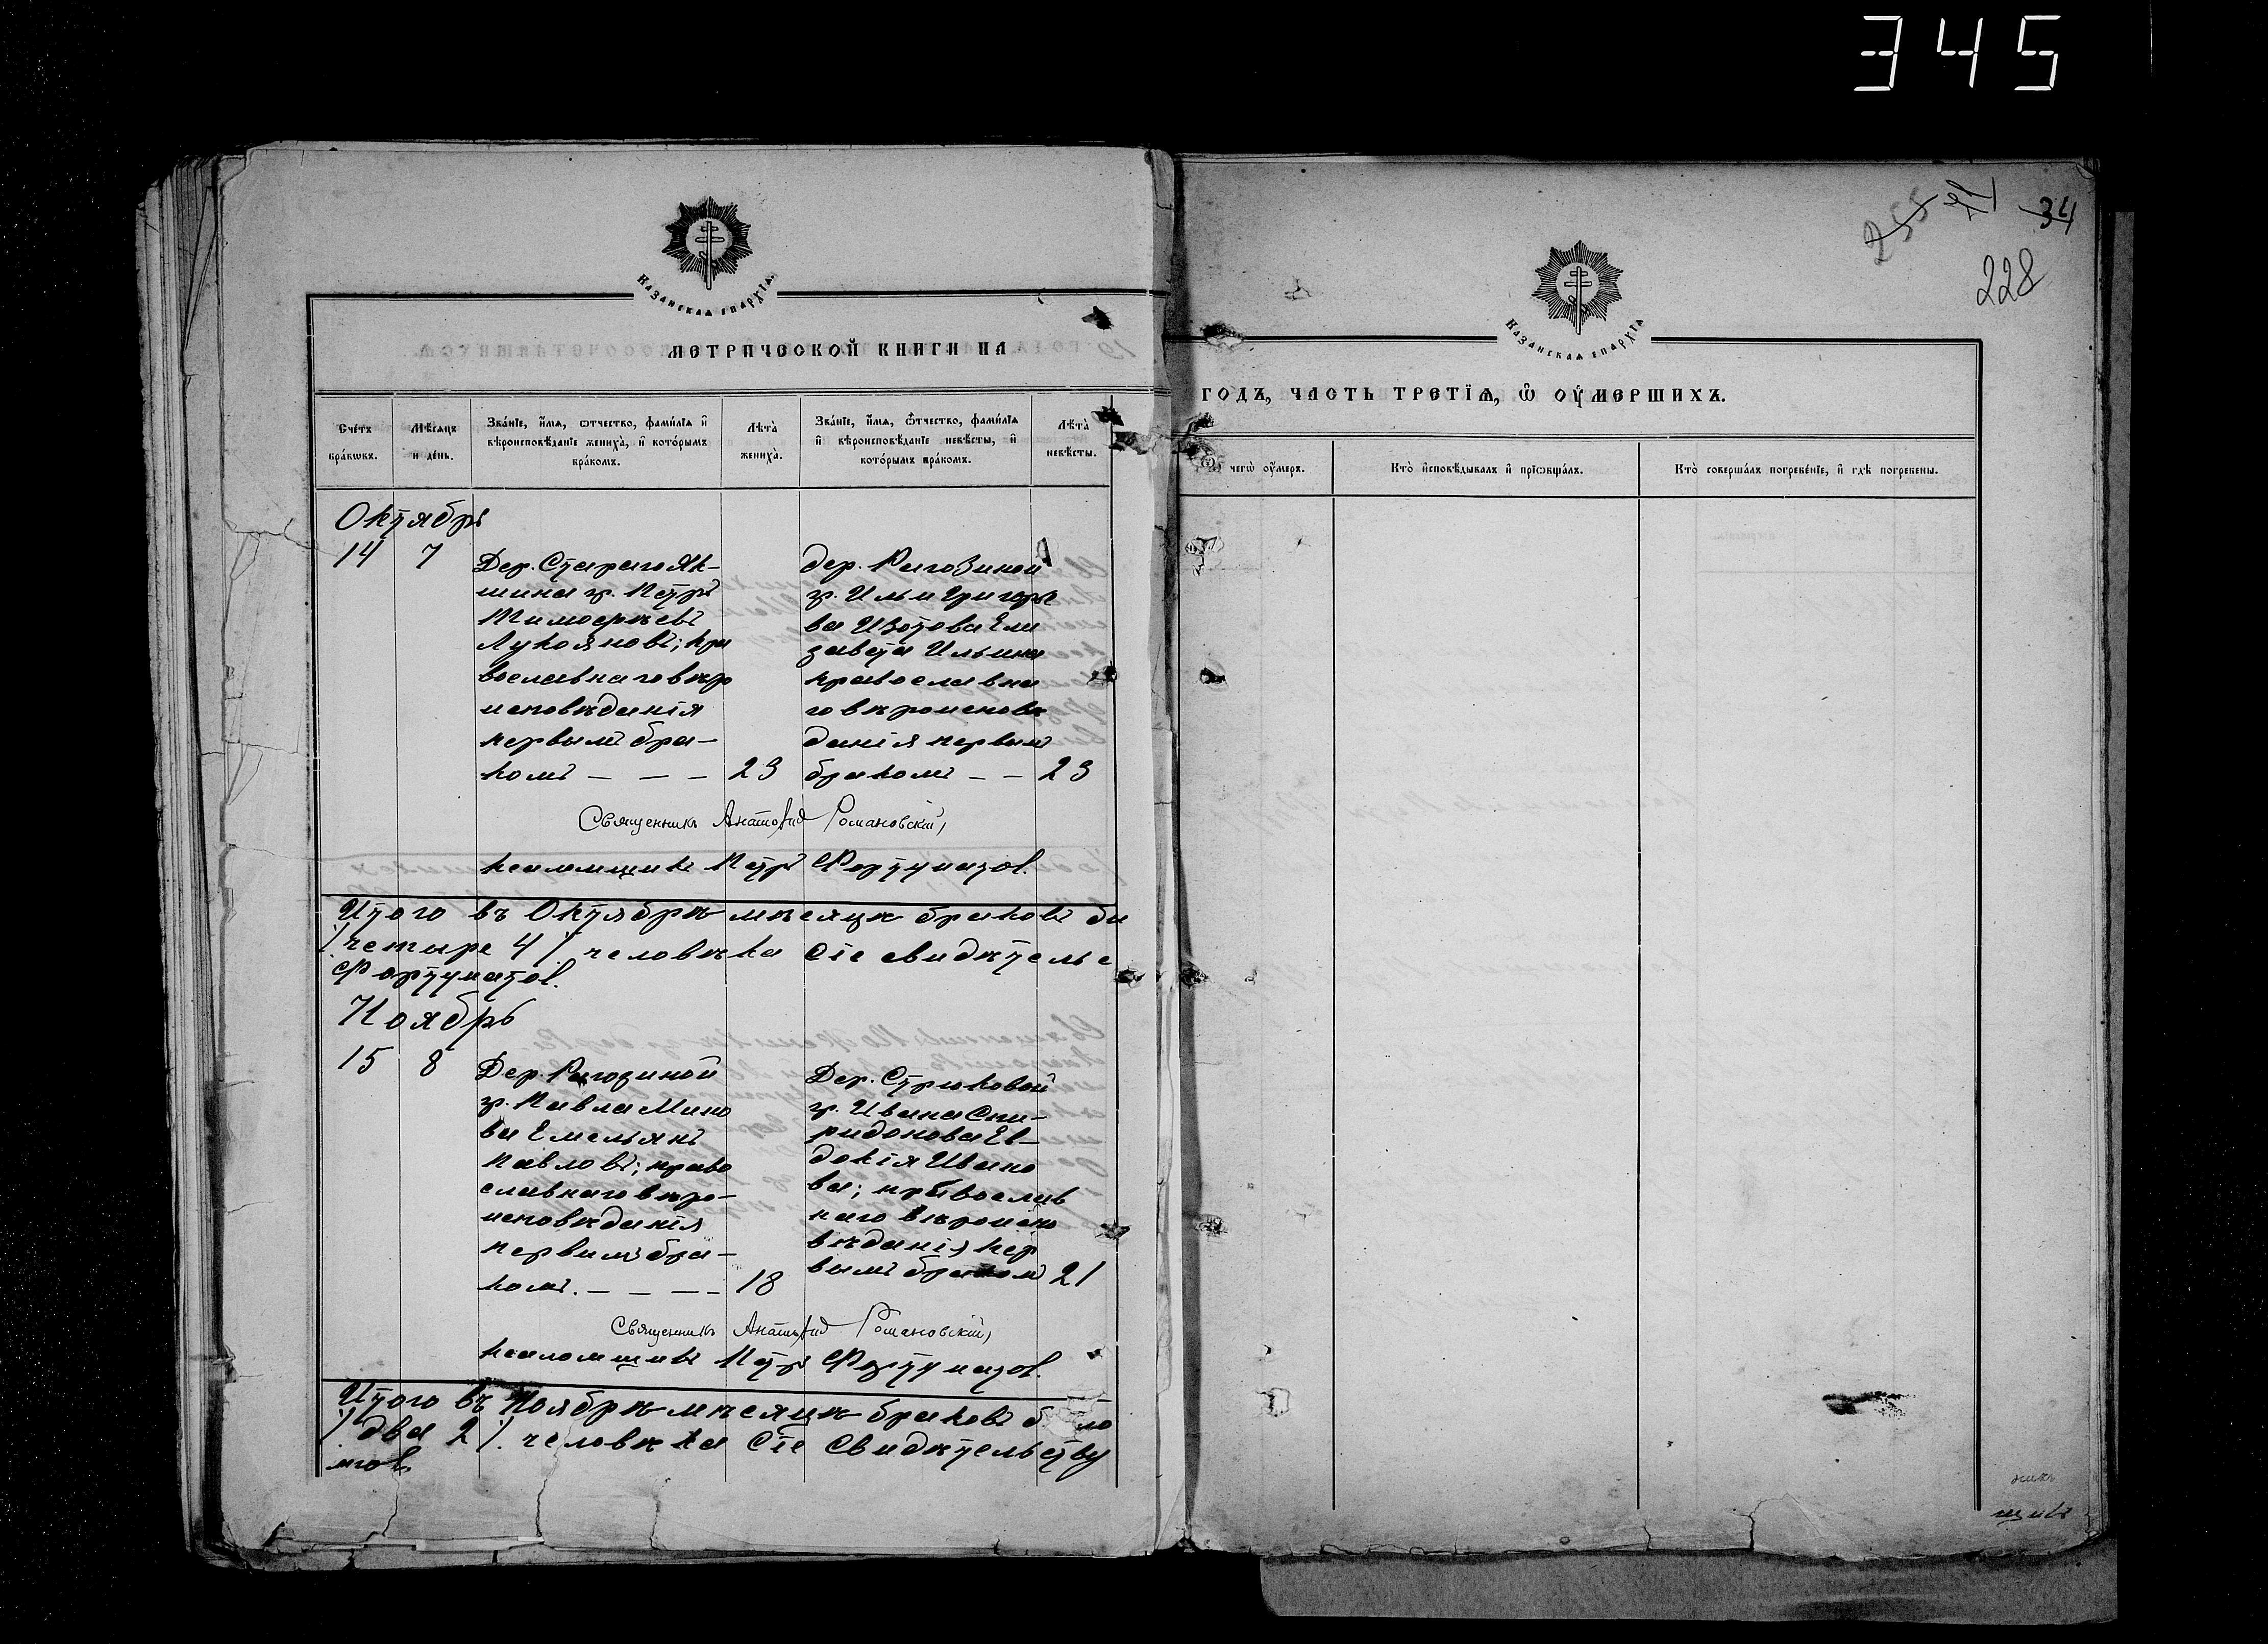 345
255 34
228
Казанскаѧ епархїѧ.
МЕТРИЧЕСКОЙ КНИГИ НА
Счетъ бракѡвъ.
Мѣсяцъ и день.
Званїе, имѧ, ѿтчество, фамилїѧ и вѣроисповѣданїе жениха, и которымъ бракомъ.
Лѣта жениха.
Званїе, имѧ, ѿтчество, фамилїѧ и вѣроисповѣданїе невѣсты, и которымъ бракомъ.
Лѣта невѣсты.
Октябрь
14 7
Дер. Стараго Як-
шина гр. Петръ
Тимофеевъ
Лукояновъ; пра
вославнаго вѣро
исповѣданія
первымъ бра-
комъ — — — 23
дер. Рагозиной
гр. Ильи Григорье
ва Изотова Ели
завета Ильина
православна
го вѣроисповѣ
данія первымъ
бракомъ — — 23
Священникъ Анатолій Романовскій,
псаломщикъ Петръ Фортунатов.
Итого въ Октябрѣ мѣсяцѣ браковъ бы
/четыре 4/ человѣка Сіе свидѣтельс
Фортунатов.
Ноябрь
15 8
Дер. Рагозиной
гр. Павла Мино
ва Емельянъ
Павловъ; право
славнаго вѣро-
исповѣданія
первымъ бра-
комъ. — — — — 18
Дер. Стрюковой
гр. Ивана Спи-
ридонова Ев-
докія Ивано
ва; православ
наго вѣроиспо
вѣданія пер
вымъ бракомъ 21
Священникъ Анатолій Романовскій,
псаломщикъ Петръ Фортунатов.
Итого въ Ноябрѣ мѣсяцѣ браковъ было
/два 2/. человѣка Сіе Свидѣтельству
Казанскаѧ епархїѧ
ГОДЪ, ЧАСТЬ ТРЕТЇѦ, Ѡ ОУМЕРШИХЪ.
Ѿ чегѡ оумеръ.
Кто исповѣдывалъ и прїѡбщалъ.
Кто совершалъ погребенїе, и гдѣ погребены.
никъ
щикъ